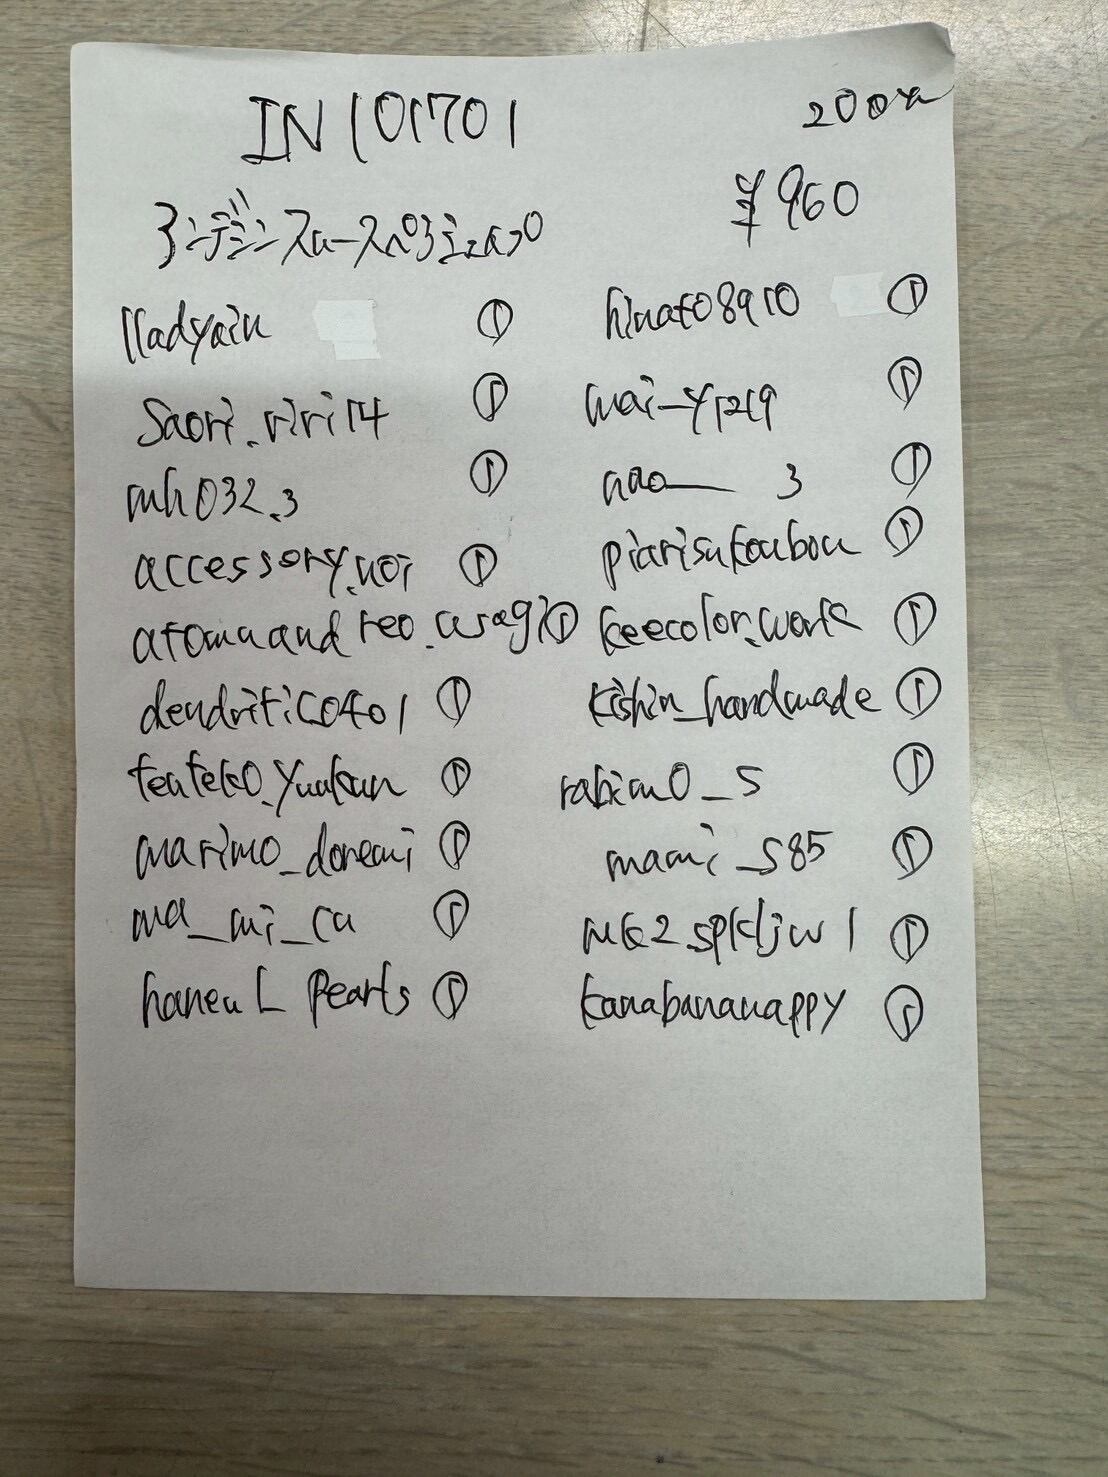 IN101701
200ya
¥960
lladyain ①
saori.riri14 ①
mh032.3 ①
accessory.noi ①
atomuand reo.usagi ①
dendritic0401 ①
teateko.yuukun ①
marimo_doremi ①
ma_mi_cu ①
haneul pearls ①
hinato8910 ①
mai_y1219 ①
nao__3 ①
piarisukoubou ①
keecolor.work ①
kishin_handmade ①
rabimo_s ①
mami_s85 ①
kanabananappy ①